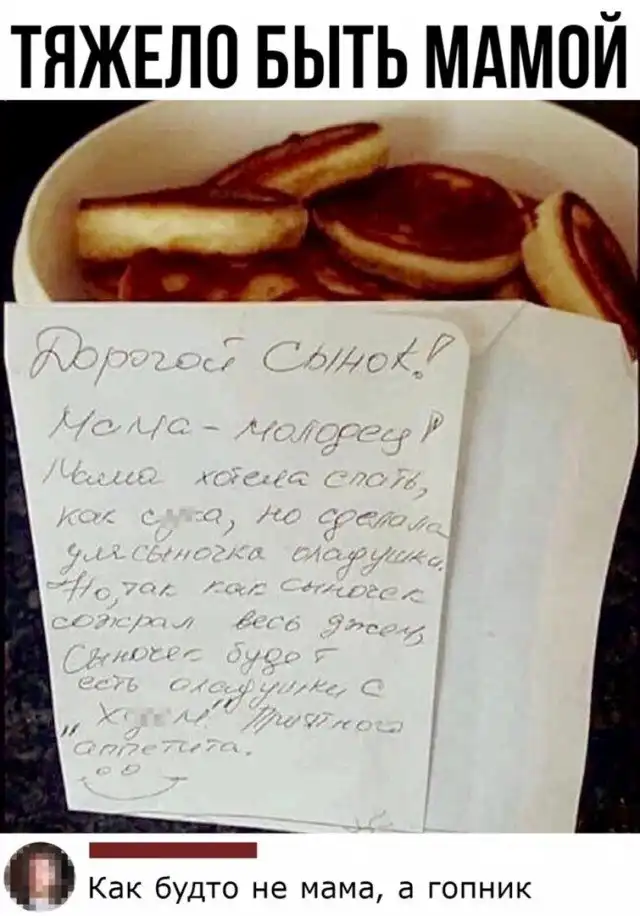 ТЯЖЕЛО БЫТЬ МАМОЙ
Дорогой Сынок!
Мама - молодец!
Мама хотела спать,
как с а, но сделала
для сыночка оладушки.
Но, так как сыночек
сожрал весь джем,
Сыночек будет
есть оладушки с
"Х м" Приятного
аппетита.
Как будто не мама, а гопник